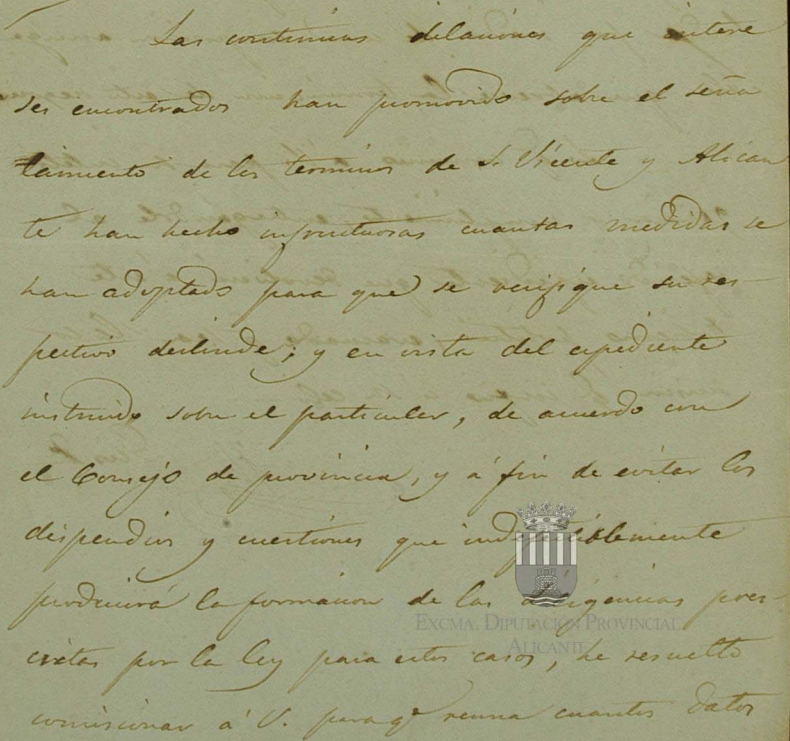 Las continuas dilaciones que intere
ses encontrados han promovido sobre el seña
lamiento de los terminos de Sn. Vicente y Alican
te han hecho infructuosas cuantas medidas se
han adoptado para que se verifique su res-
pectivo deslinde; y en vista del espediente
instruido sobre el particular, de acuerdo con
el Consejo de provincia, y á fin de evitar los
dispendios y cuestiones que indefectiblemente
producirá la formacion de las diligencias pres-
critas por la ley para estos casos, he resuelto
comisionar á V. para qe. reuna cuantos datos
EXCMA. DIPUTACIÓN PROVINCIAL
ALICANTE